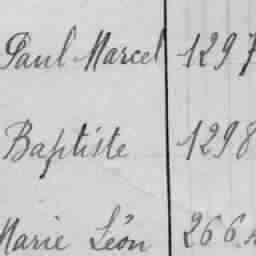 Paul Marcel 1297
Baptiste 1298
Marie Léon 2664